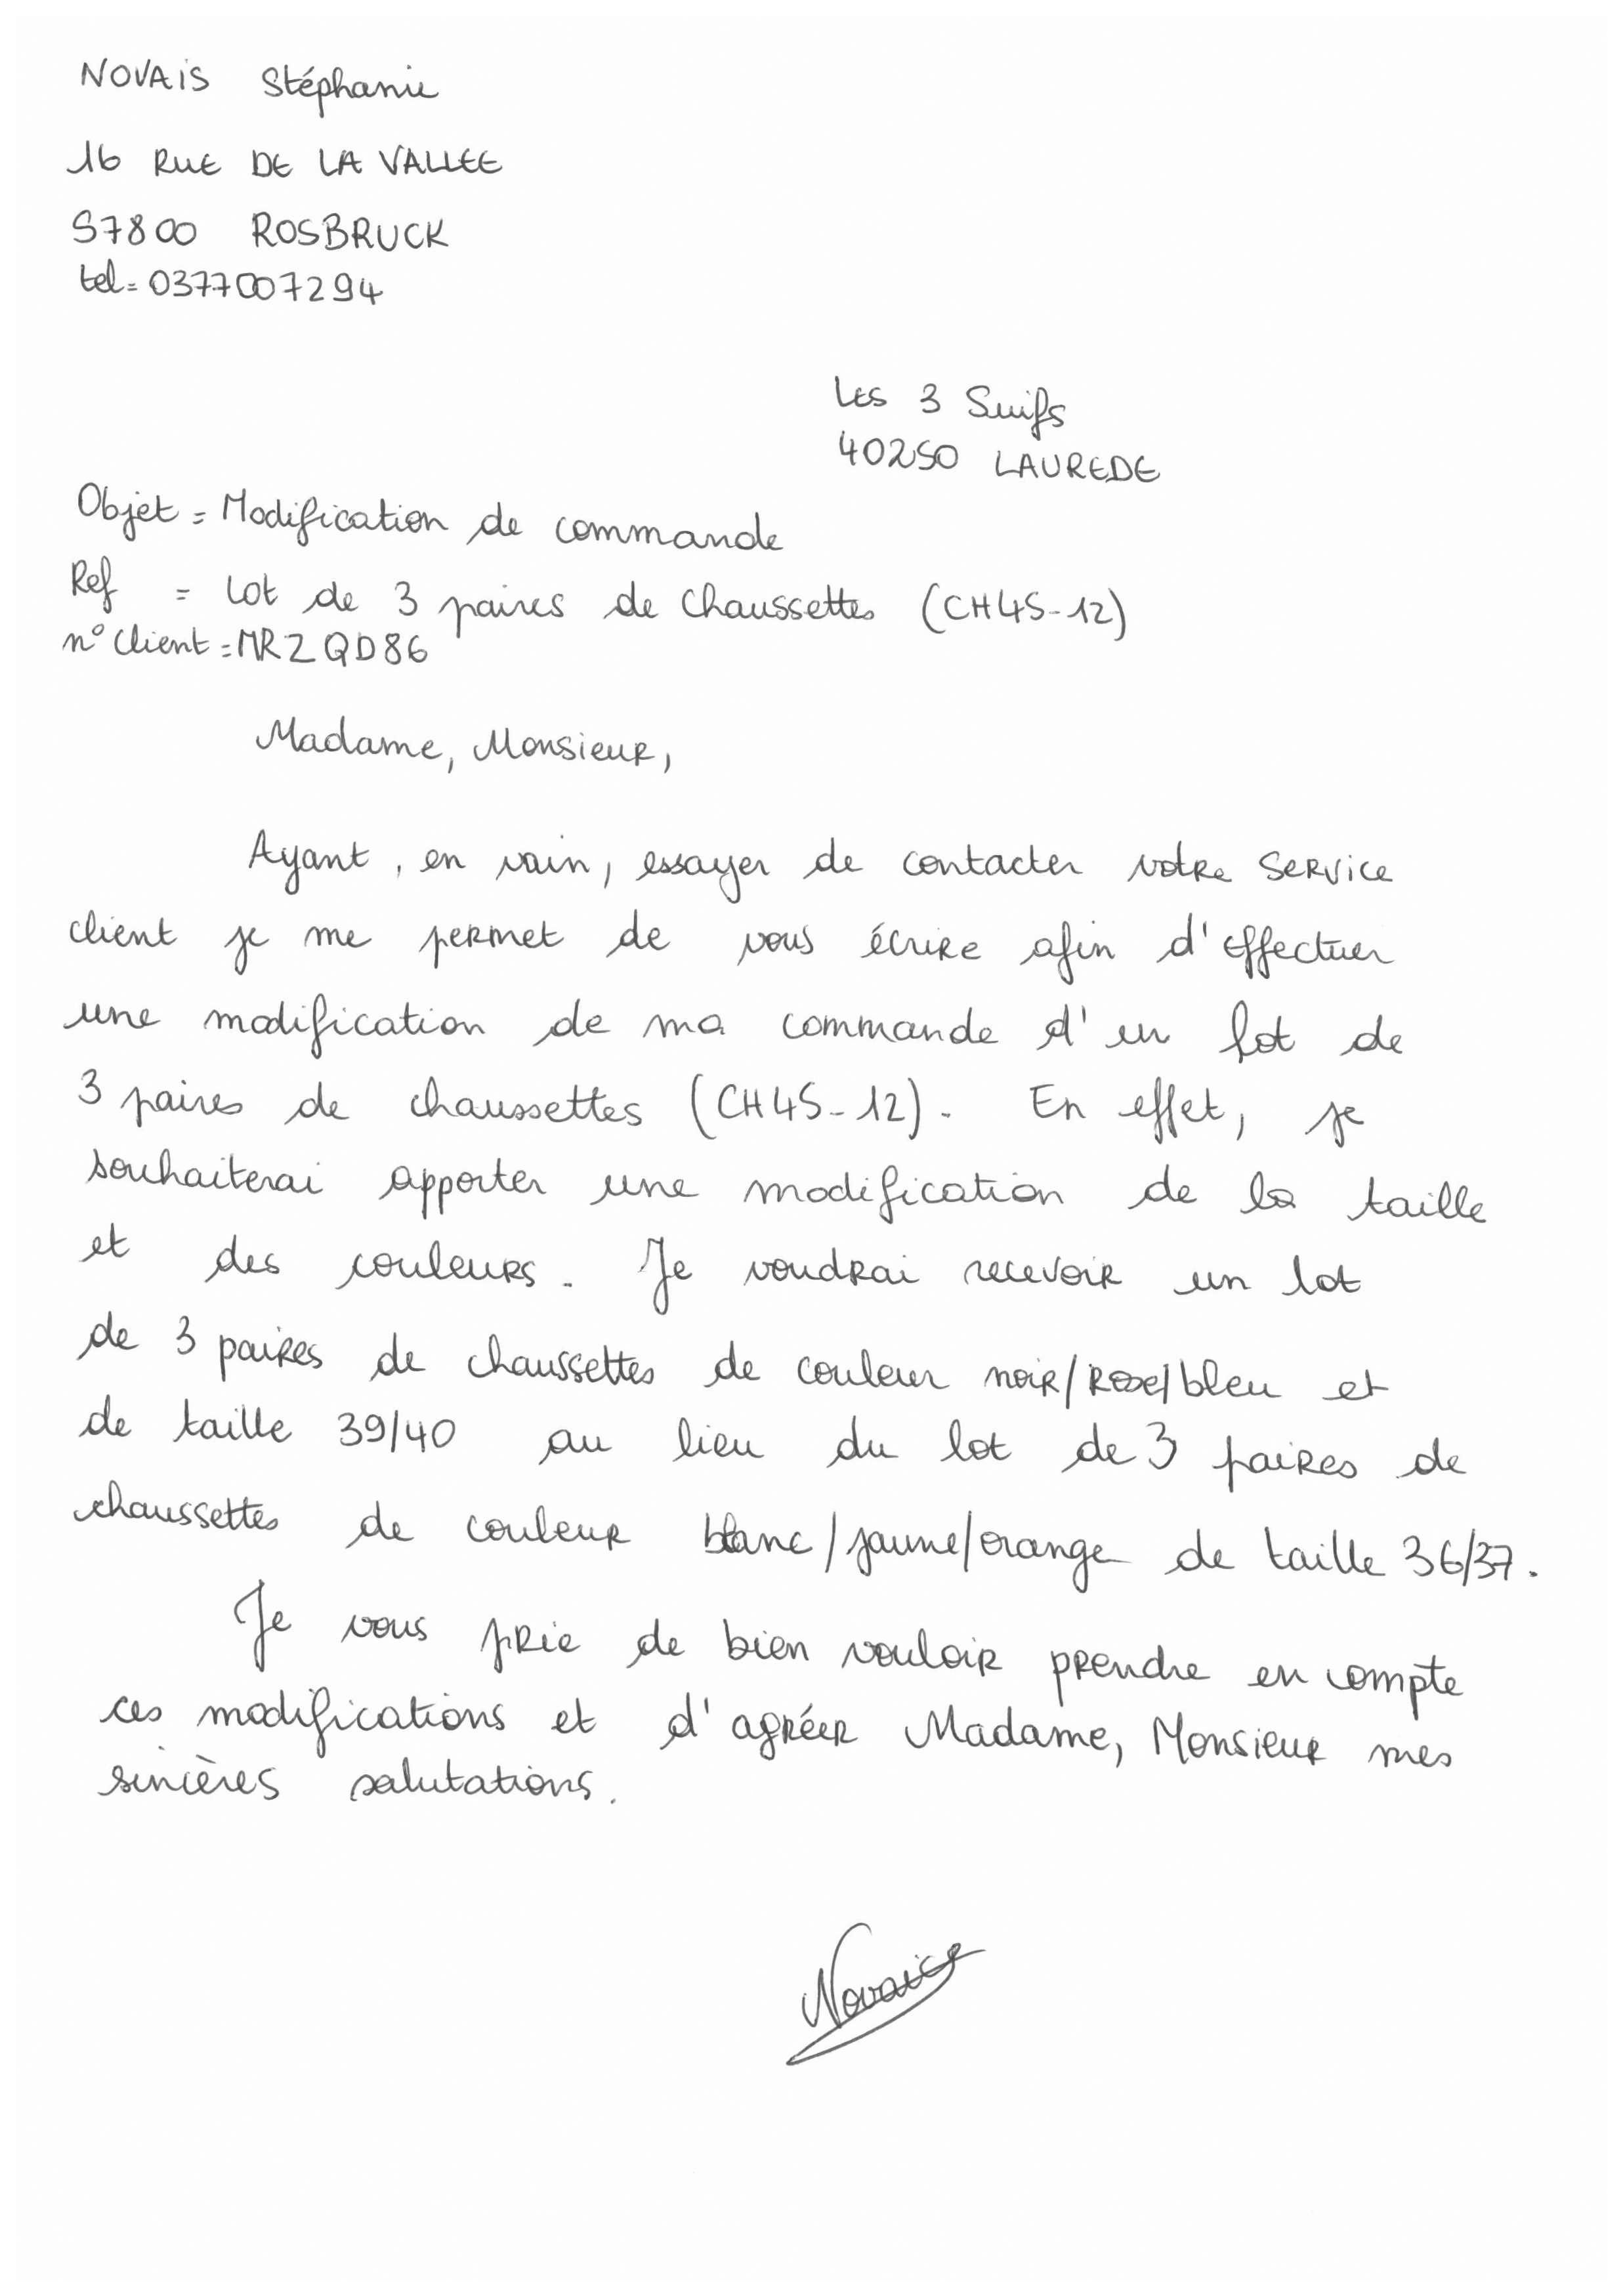 NOVAIS Stéphanie
16 RUE DE LA VALLEE
57800 ROSBRUCK
tel = 0377007294
Les 3 Suifs
40250 LAUREDE
Objet = Modification de commande
Ref = lot de 3 paires de chaussettes (CH45-12)
n° client = MRZQD86
Madame, Monsieur,
Ayant, en vain, essayer de contacter votre service
client je me permet de vous écrire afin d'effectuer
une modification de ma commande d'un lot de
3 paires de chaussettes (CH45-12). En effet, je
souhaiterai apporter une modification de la taille
et des couleurs. Je voudrai recevoir un lot
de 3 paires de chaussettes de couleur noir/rose/bleu et
de taille 39/40 au lieu du lot de 3 paires de
chaussettes de couleur blanc/jaune/orange de taille 36/37.
Je vous prie de bien vouloir prendre en compte
ces modifications et d'agréer Madame, Monsieur mes
sincères salutations.
Novais